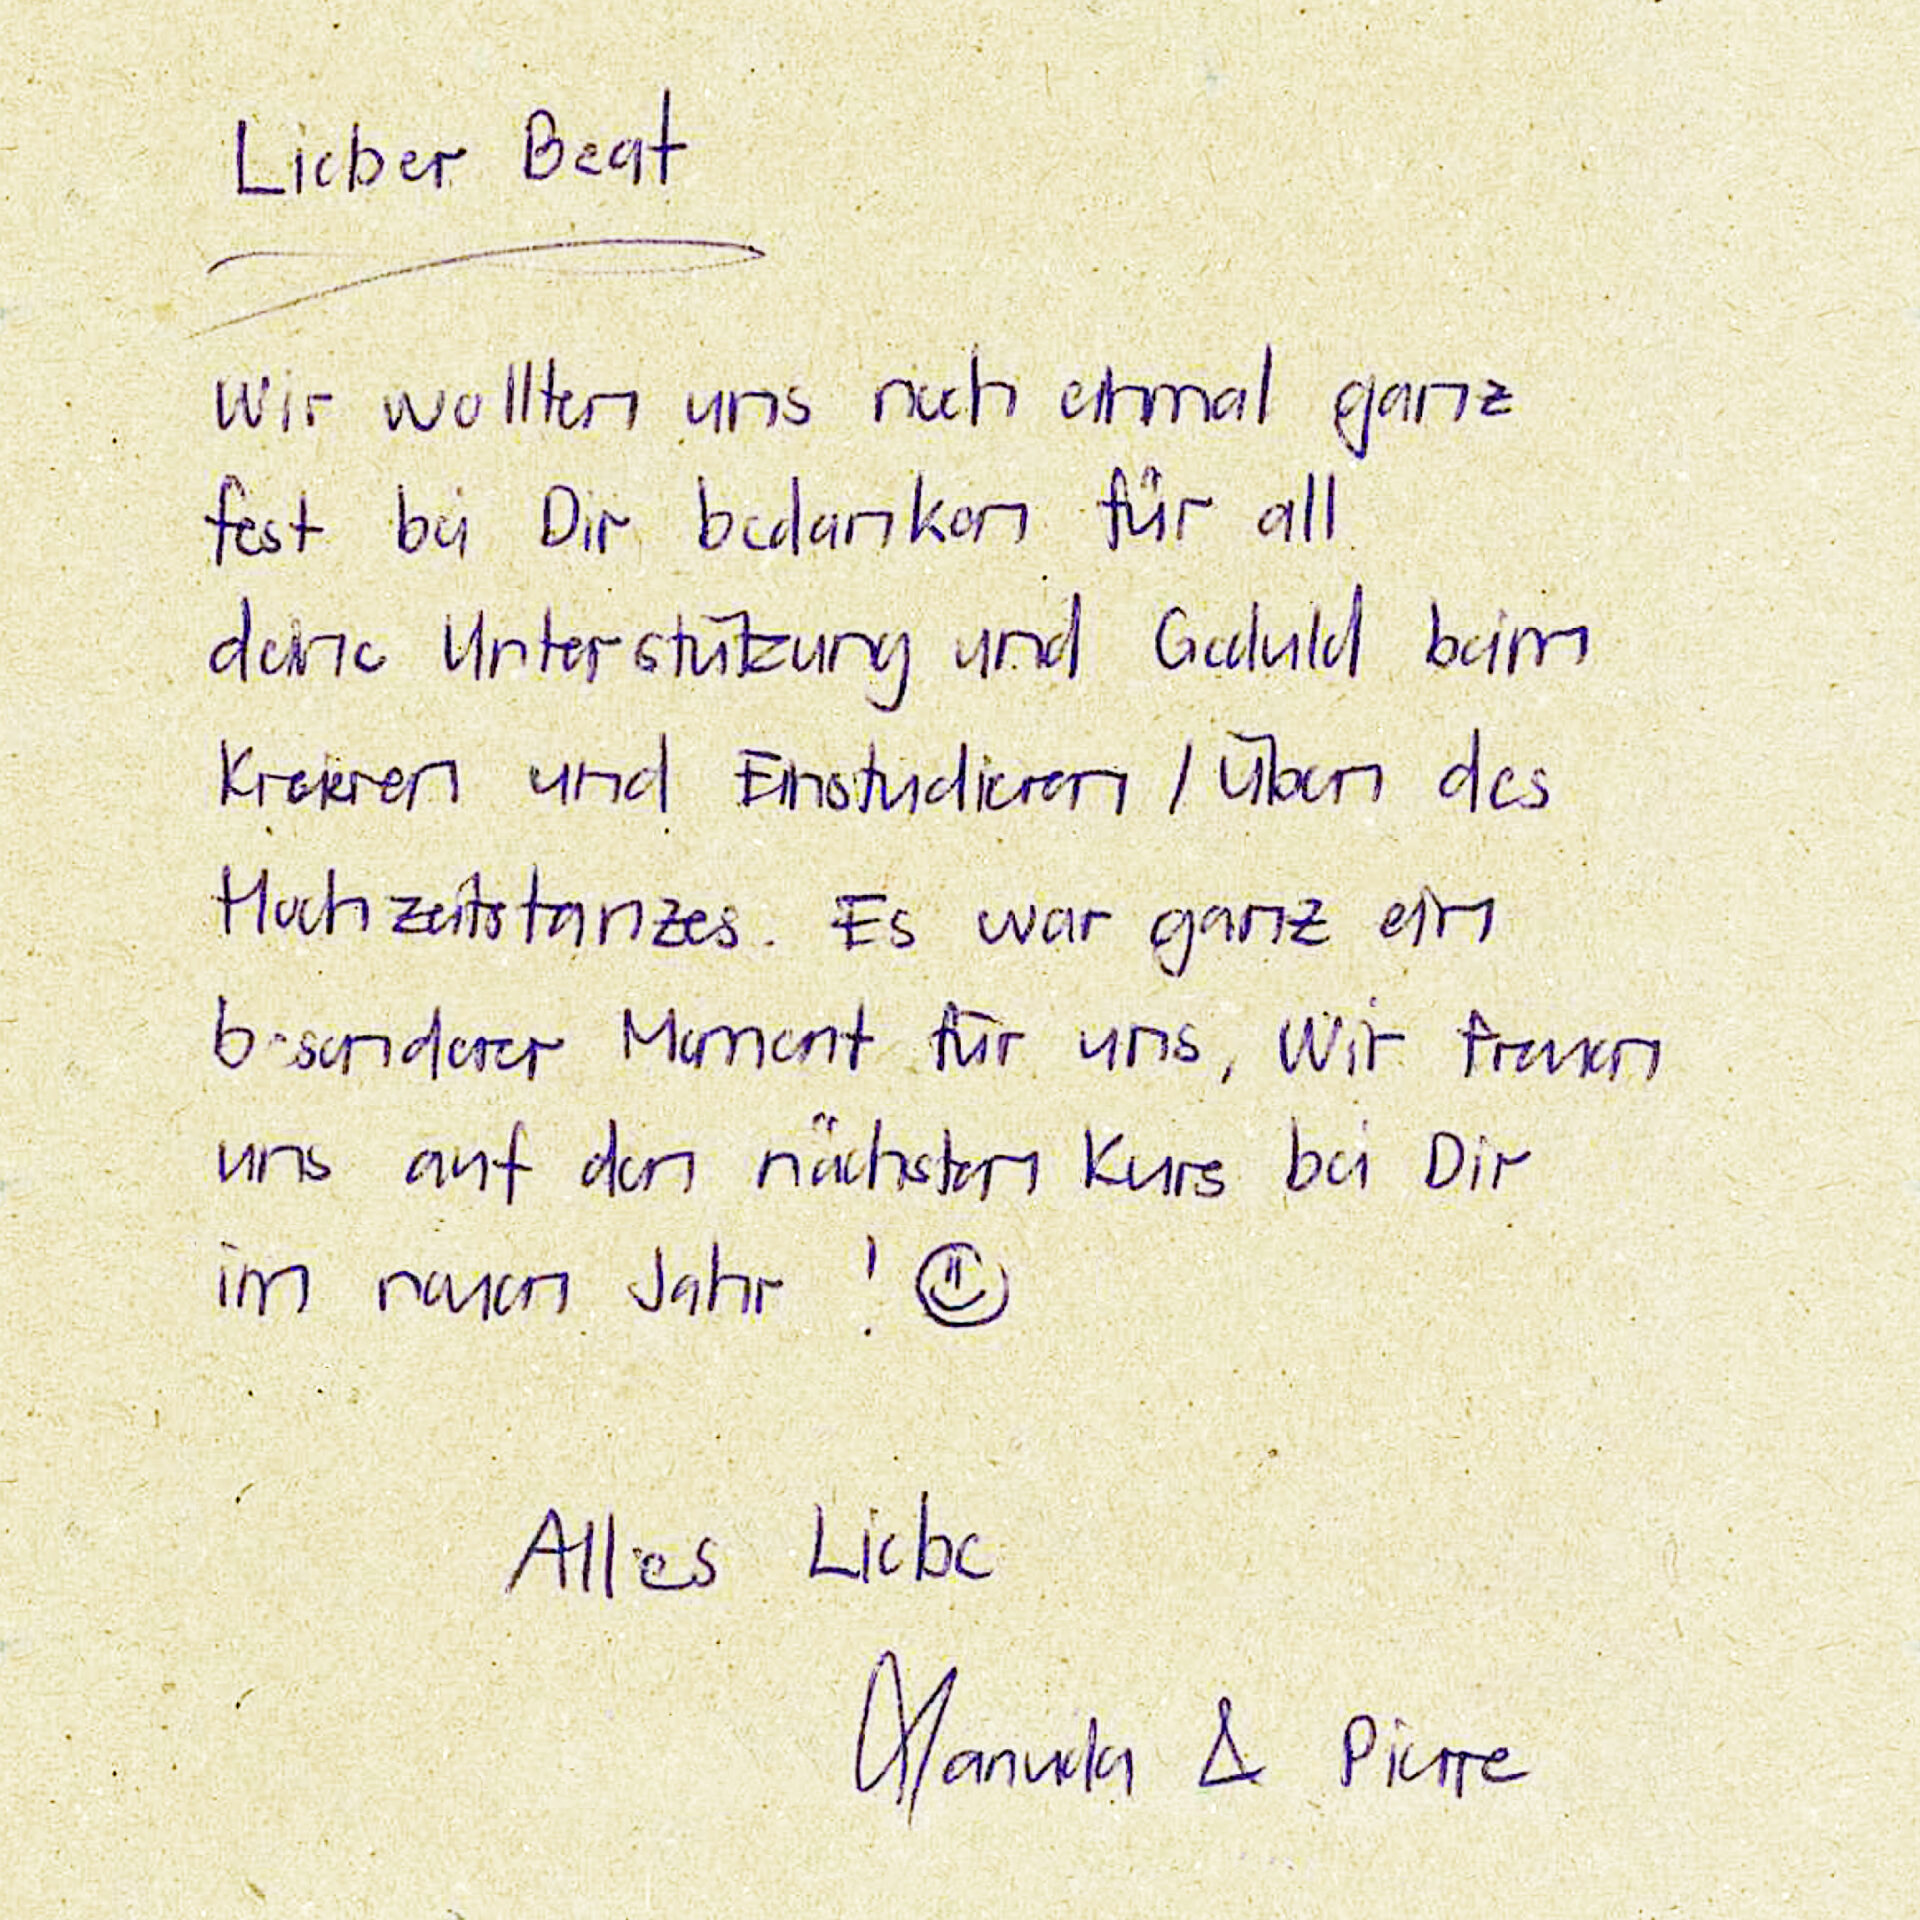 Lieber Beat
Wir wollten uns noch einmal ganz
fest bei Dir bedanken für all
deine Unterstützung und Geduld beim
Kreieren und Einstudieren / Üben des
Hochzeitstanzes. Es war ganz ein
besonderer Moment für uns, Wir freuen
uns auf den nächsten Kurs bei Dir
im neuen Jahr ! ☺
Alles Liebe
Manuela & Pierre